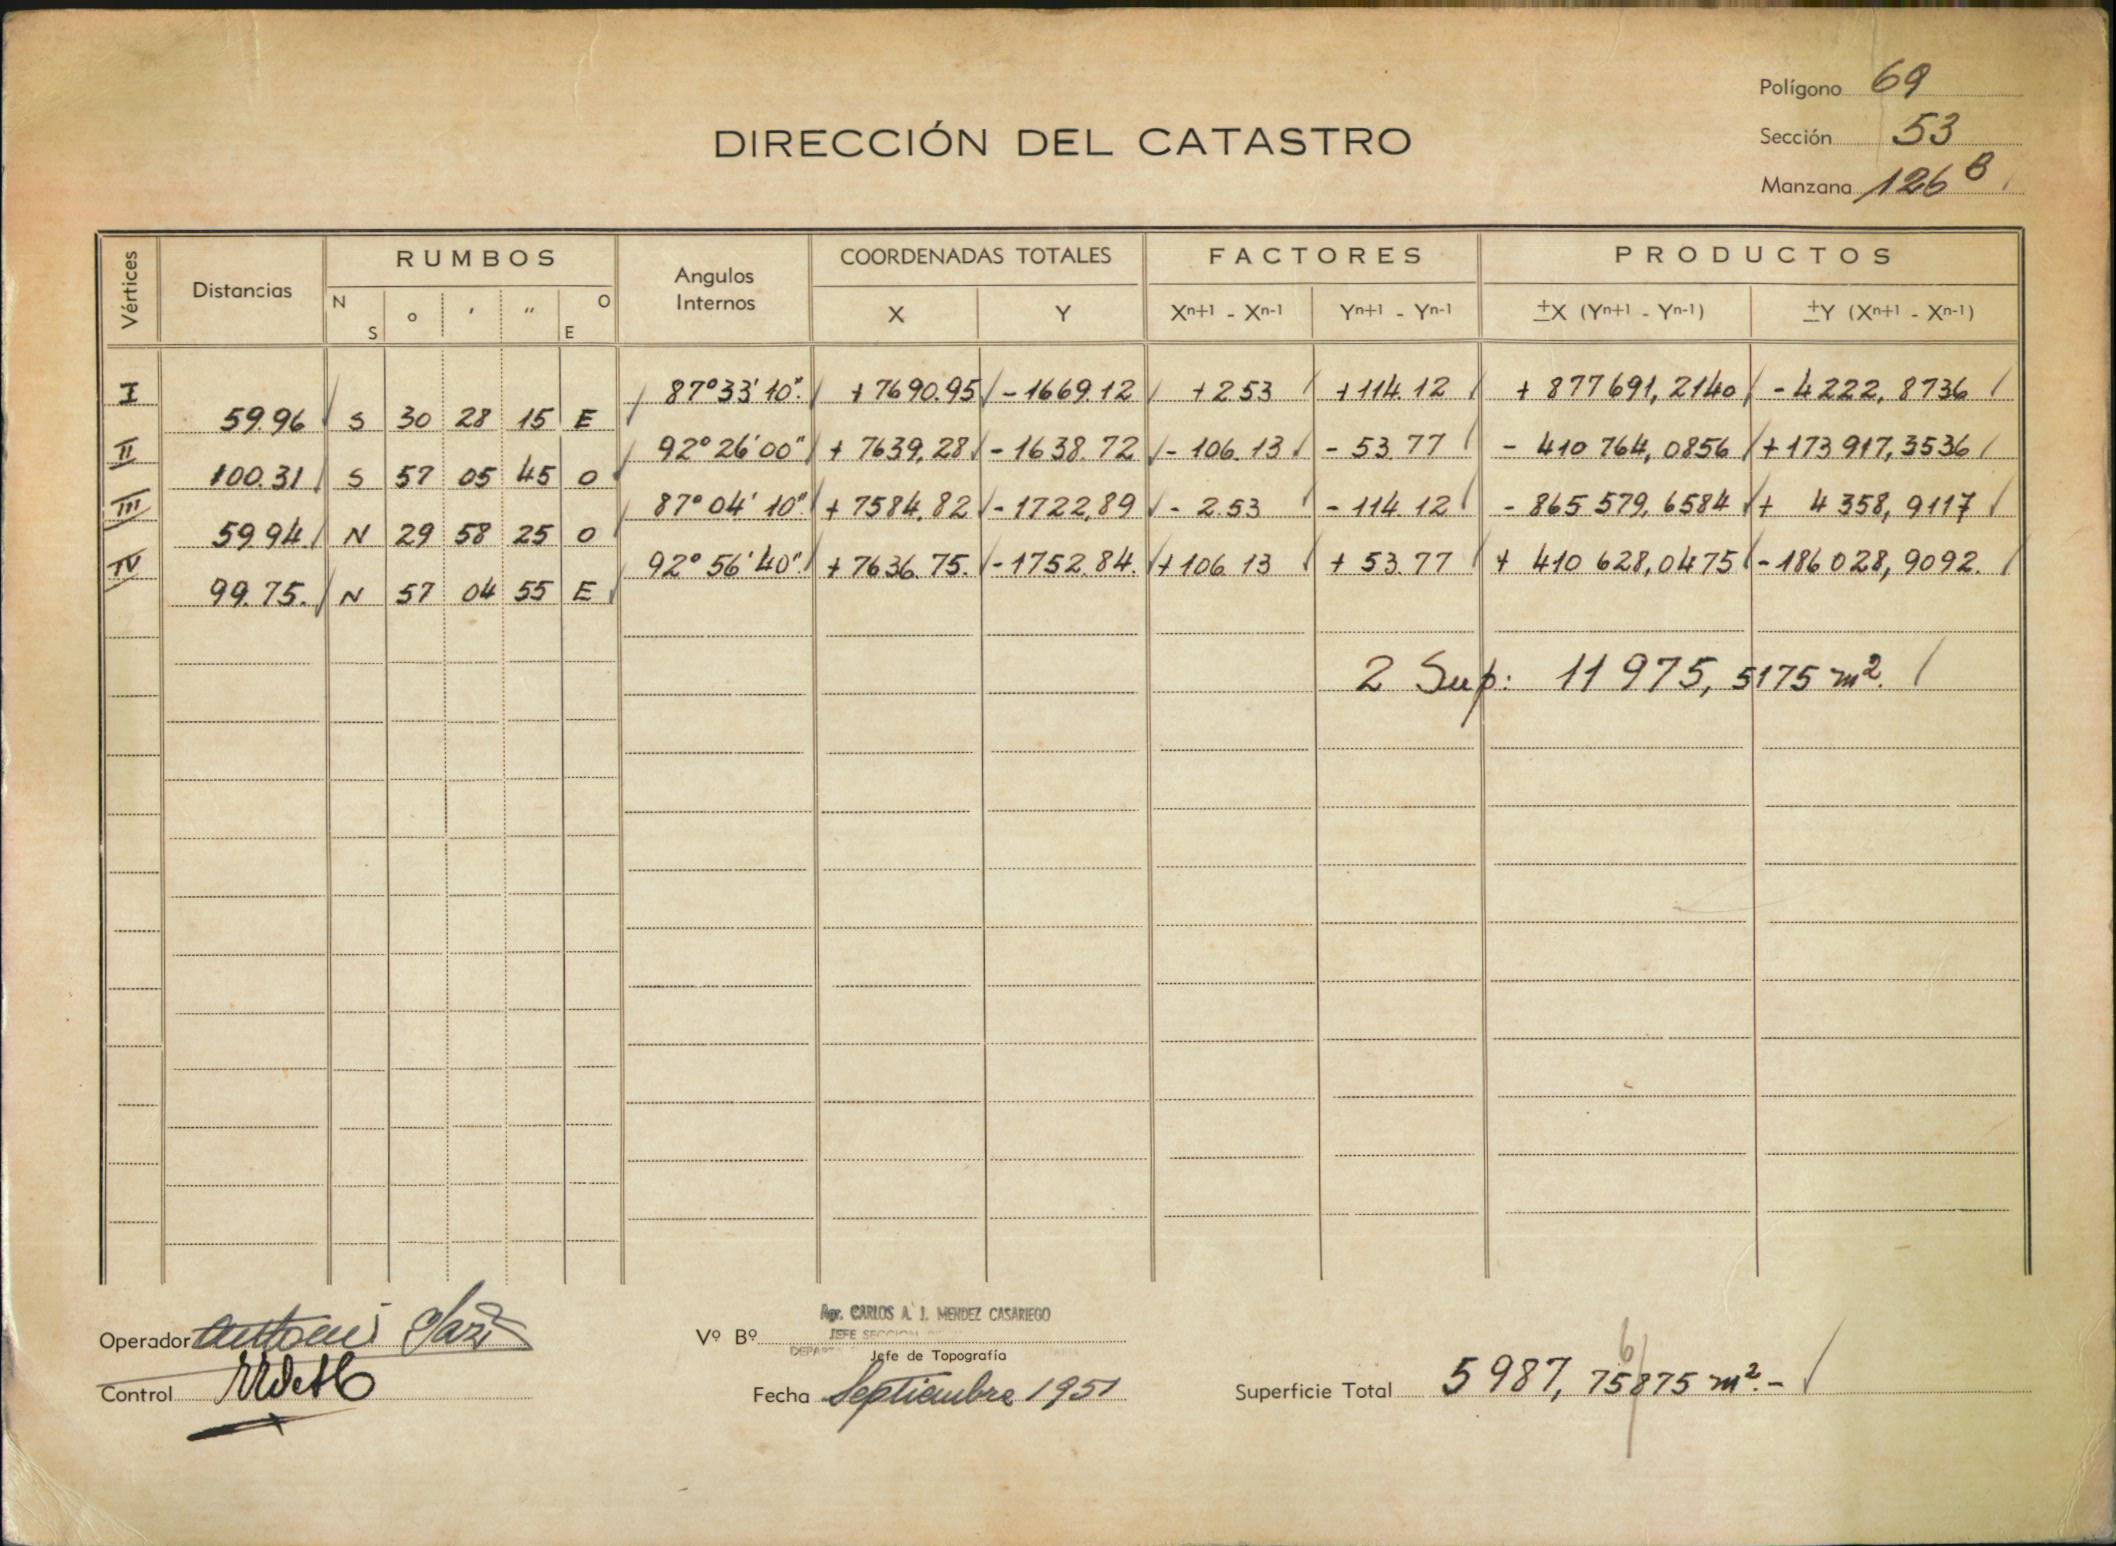 Polígono 69
DIRECCIÓN DEL CATASTRO
Sección 53
Manzana 126 B
Vértices Distancias RUMBOS Angulos Internos COORDENADAS TOTALES FACTORES PRODUCTOS
N S o ' " O E X Y Xn+1 - Xn-1 Yn+1 - Yn-1 ±X (Yn+1 - Yn-1) ±Y (Xn+1 - Xn-1)
I 87°33'10" +7690.95 -1669.12 +2.53 +114.12 +877691,2140 -4222,8736
59.96 S 30 28 15 E
II 92°26'00" +7639,28 -1638.72 -106.13 -53.77 -410 764,0856 +173 917,3536
100.31 S 57 05 45 O
III 87°04'10" +7584,82 -1722,89 -2.53 -114.12 -865 579,6584 +4 358,9117
59.94 N 29 58 25 O
IV 92°56'40" +7636.75. -1752.84. +106.13 +53.77 +410 628,0475 -186 028,9092.
99.75. N 57 04 55 E
2 Sup: 11 975,5175 m².
Operador
Vº Bº
Agr. CARLOS A. J. MENDEZ CASARIEGO
JEFE SECCION
Jefe de Topografía
Control
Fecha Septiembre 1951
Superficie Total 5 987,75875 m².-
6